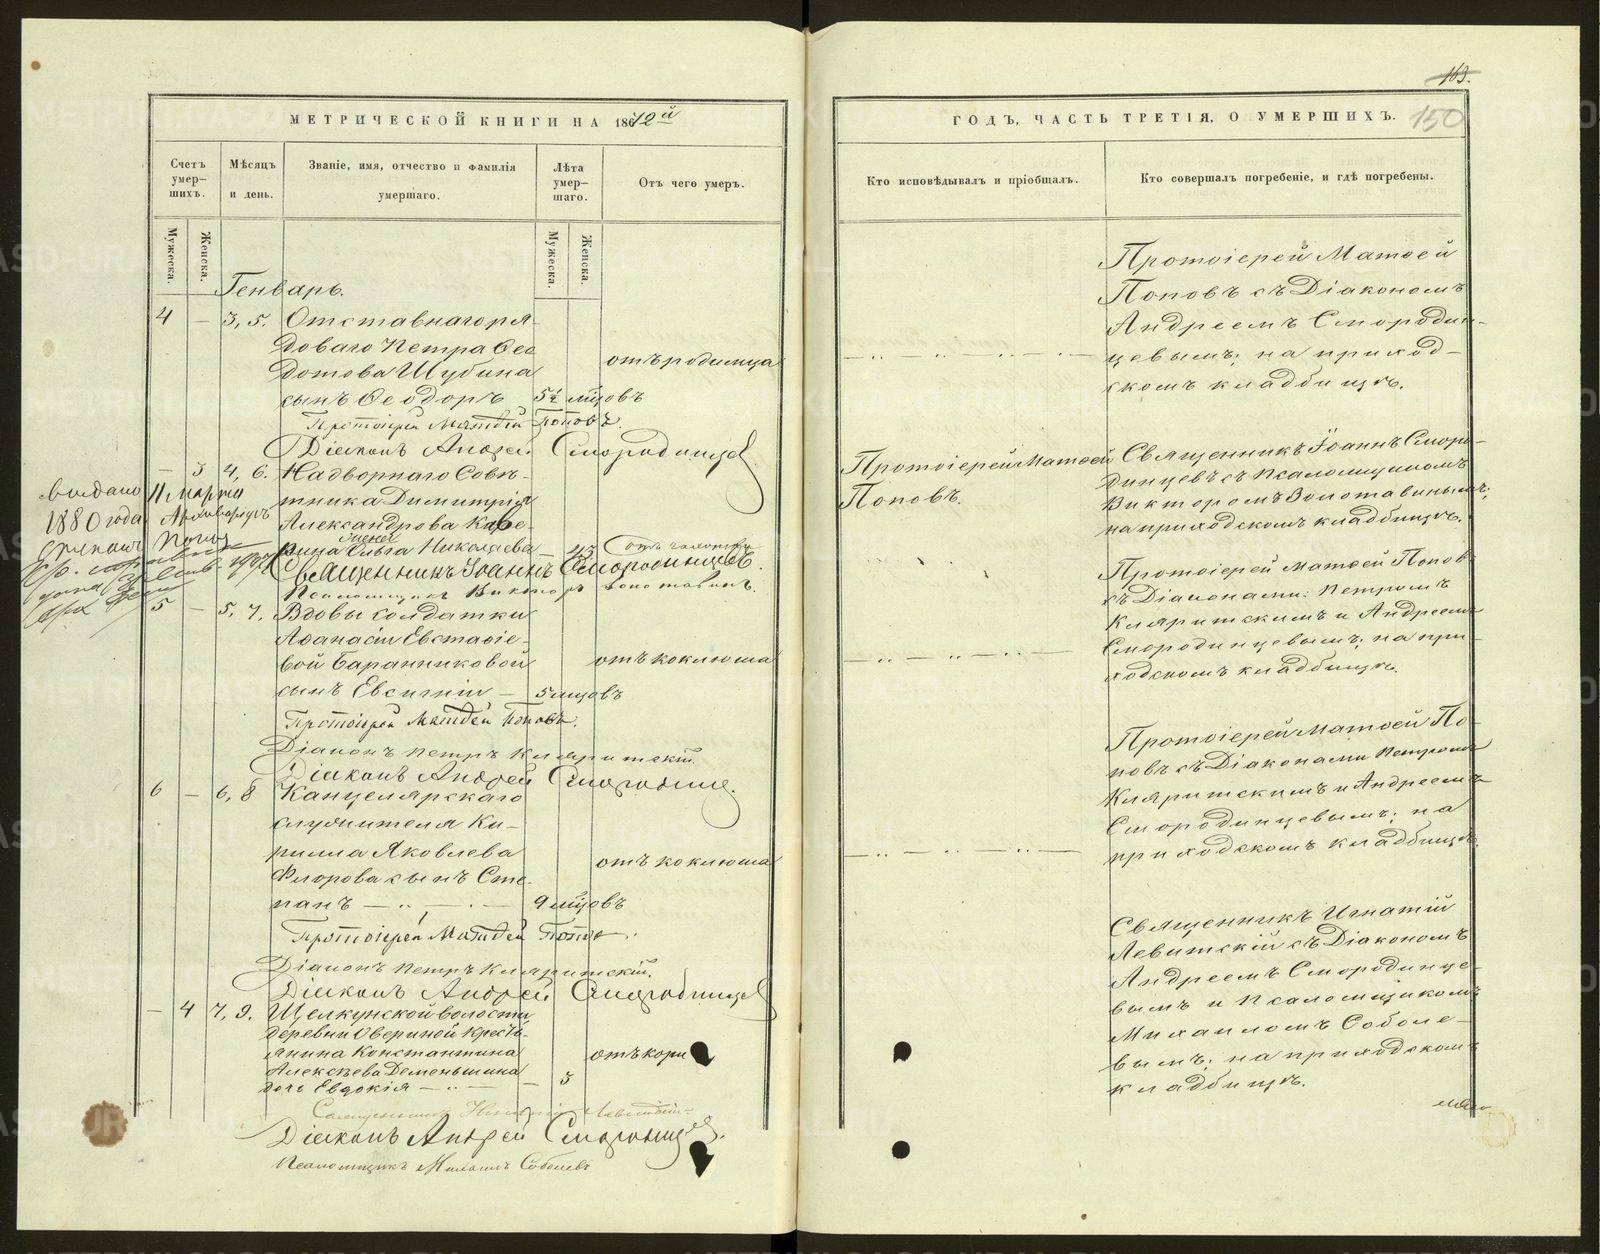 163.
150
МЕТРИЧЕСКОЙ КНИГИ НА 1872й
Счетъ умер-шихъ.
Мѣсяцъ и день.
Званіе, имя, отчество и фамилія умершаго.
Лѣта умер-шаго.
Отъ чего умеръ.
Мужеска.
Женска.
Мужеска.
Женска.
Генварь.
4 — 3, 5. Отставнаго ря-
доваго Петра Ѳео
дотова Шубина
сынъ Ѳеодоръ 5½ мцовъ
отъ родимца
Протоіерей Матѳей Поповъ.
Діаконъ Андрей Смородинцев
— 3 4, 6. Надворнаго Совѣ-
тника Димитрія
Александрова Кабе-
рина жена Ольга Николаева — 43
Священникъ Іоаннъ Смородинцевъ.
Псаломщикъ Викторъ Золотавинъ.
выдано 11 марта
1880 года
5 — 5, 7. Вдовы солдатки
Аѳанасіи Евстаѳіе-
вой Баранниковой
сынъ Евсигній — 5 мцовъ
отъ коклюша
Протоіерей Матѳей Поповъ.
Діаконъ Петръ Кляритскій.
Діаконъ Андрей Смородинцев.
6 — 6, 8 Канцелярскаго
служителя Ки-
рилла Яковлева
Флорова сынъ Сте-
панъ — 9 мцовъ
отъ коклюша
Протоіерей Матѳей Попов
Діаконъ Петръ Кляритскій.
Діаконъ Андрей Смородинцев
— 4 7, 9. Щелкунской волости
деревни Аверинской крестьянина Константина
Алексѣева Деменьшина
дочь Евдокія — — 3
отъ кори
Священникъ Игнатій Левитскій
Діаконъ Андрей Смородинцев.
Псаломщикъ Михаилъ Соболевъ
ГОДЪ, ЧАСТЬ ТРЕТІЯ, О УМЕРШИХЪ.
Кто исповѣдывалъ и пріобщалъ.
Кто совершалъ погребеніе, и гдѣ погребены.
Протоіерей Матѳей
Поповъ съ Діакономъ
Андреемъ Смородин-
цевымъ; на приход-
скомъ кладбищѣ.
Протоіерей Матѳей
Поповъ.
Священникъ Іоаннъ Сморо-
динцевъ съ Псаломщикомъ
Викторомъ Золотавинымъ;
на приходскомъ кладбищѣ.
Протоіерей Матѳей Поповъ
съ Діаконами: Петромъ
Кляритскимъ и Андреемъ
Смородинцевымъ; на при-
ходскомъ кладбищѣ.
Протоіерей Матѳей По-
повъ съ Діаконами Петромъ
Кляритскимъ и Андреемъ
Смородинцевымъ; на
приходскомъ кладбищѣ.
Священникъ Игнатій
Левитскій съ Діакономъ
Андреемъ Смородинце-
вымъ и Псаломщикомъ
Михаиломъ Соболе-
вымъ; на приходскомъ
кладбищѣ.